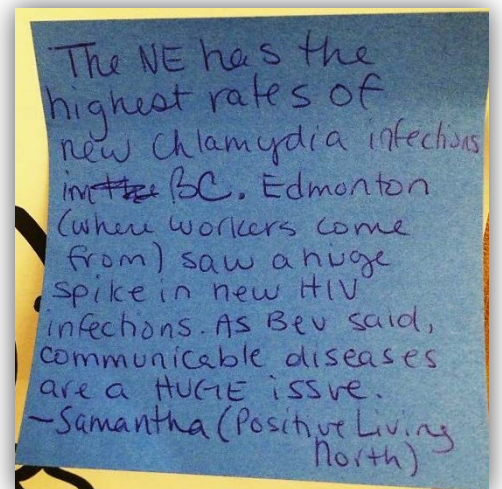 The NE has the
highest rates of
new Chlamydia infections
in the BC. Edmonton
(where workers come
from) saw a huge
spike in new HIV
infections. As Bev said,
communicable diseases
are a HUGE issue.
-Samantha (Positive Living
North)